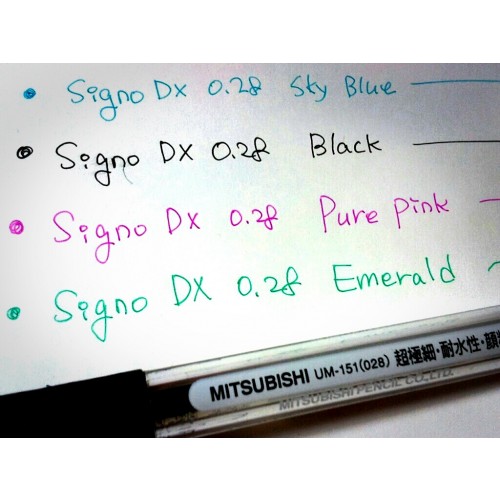 Signo DX 0.28 Sky Blue
Signo DX 0.28 Black
Signo DX 0.28 Pure Pink
Signo DX 0.28 Emerald
MITSUBISHI UM-151(028) 超極細・耐水性・顔
MITSUBISHI PENCIL CO., LTD.